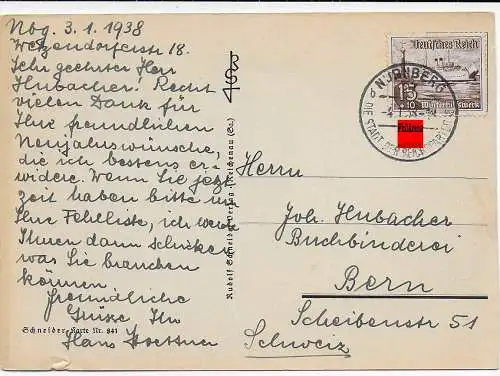 Nbg. 3.1.1938
Wetzendorferstr 18.
Sehr geehrter Herr
Hubacher: Recht
vielen Dank für
Ihre freundlichen
Neujahrswünsche,
die ich bestens er-
widere. Wenn Sie jetzt
Zeit haben bitte um
Ihre Fehlliste, ich werde
Ihnen dann schicken
was Sie brauchen
können
freundliche
Grüsse Ihr
Hans
Schneider-Karte Nr. 841
Rudolf Schneider Verlag, Reichenau (Sa.)
Deutsches Reich
15
+10 Winterhilfswerk
NÜRNBERG
DIE STADT DER REICHSPARTEITAGE
Herrn
Joh. Hubacher
Buchbinderei
Bern
Scheibenstr 51
Schweiz